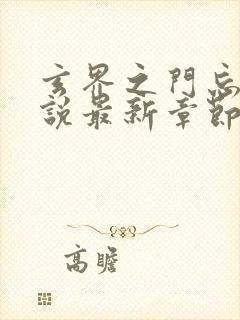 玄界之門忘
說最新章節
高瞻